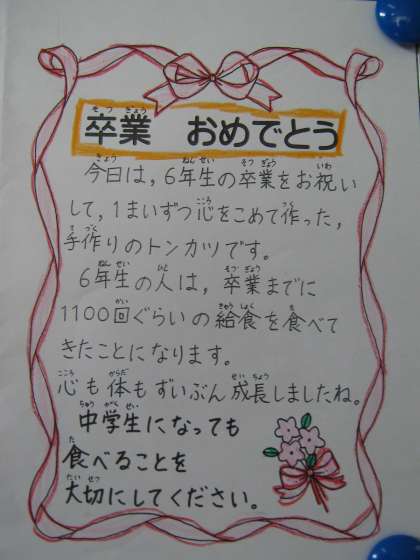 卒業　おめでとう
今日は，6年生の卒業をお祝い
して，1まいずつ心をこめて作った，
手作りのトンカツです。
6年生の人は，卒業までに
1100回ぐらいの給食を食べて
きたことになります。
心も体もずいぶん成長しましたね。
中学生になっても
食べることを
大切にしてください。